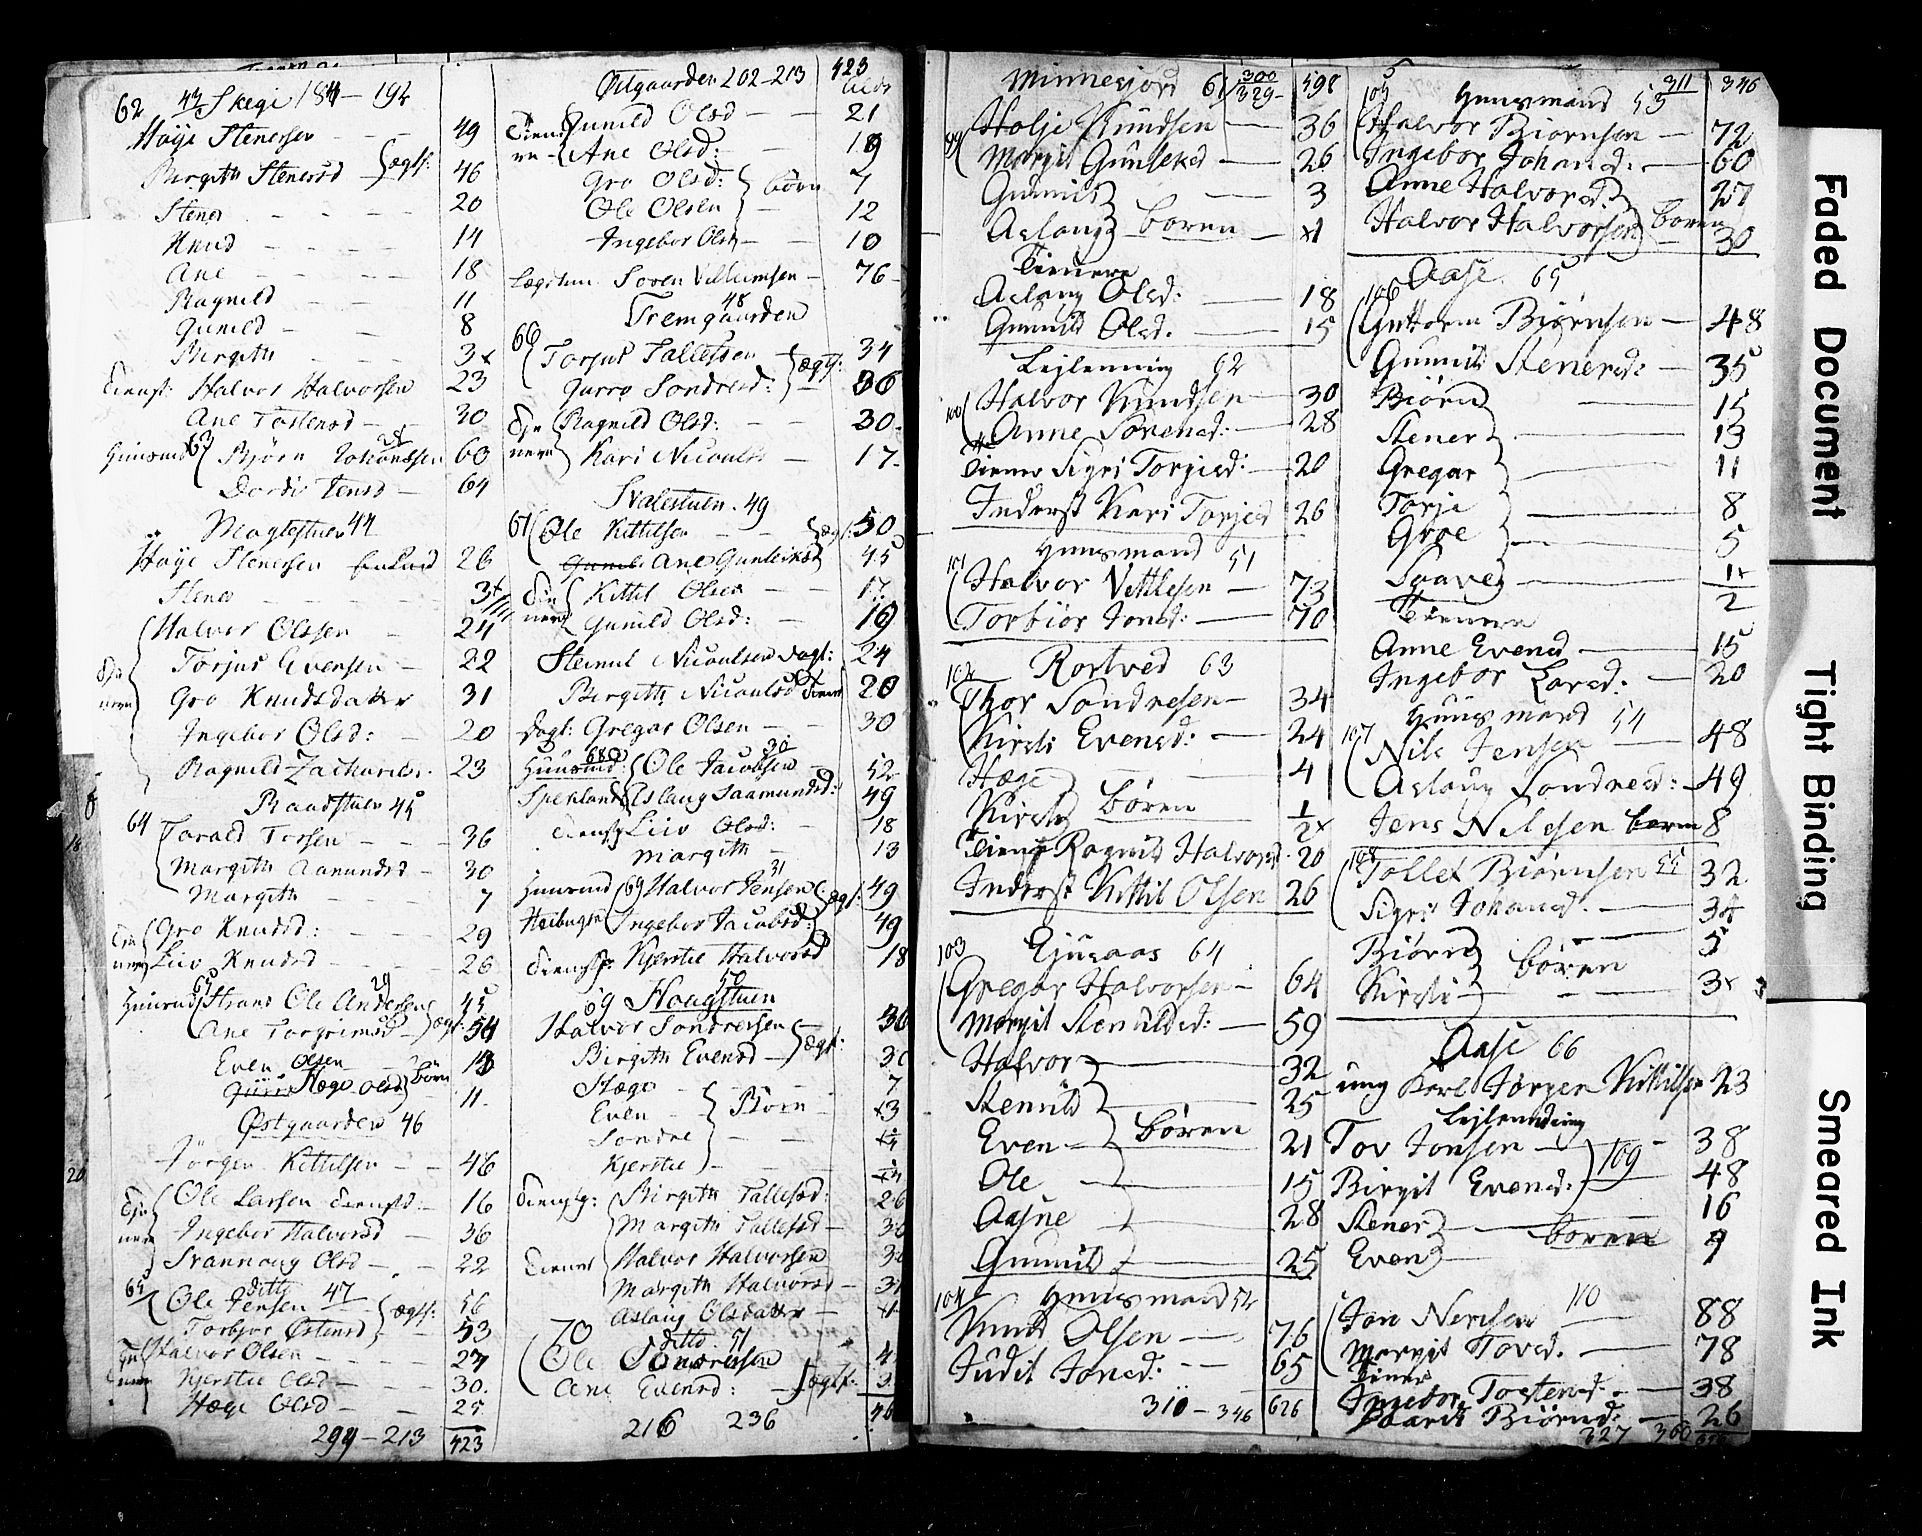 62 43 Skegi 184 - 192
Høye Stenersen 49
Birgith Stenersd ægtf: 46
Stener 20
Knud 14
Ane 18
Ragnild 11
Gunild 8
Birgith 3x
Tienst: Halvor Halvorsen 23
Ane Tostensd 30
Huusmd 63 Bjørn Johannesen 60
Dordi Jensd 64
Maglestuen 44
Høye Stenersen 26
Stener 3x
Halvor Olssen 24
Torjus Evensen 22
Gro Knudsdatter 31
Ingebor Olsd: 20
Ragnild Zachariæ 23
Raadstuen 45
64 Torald Torsen 36
Margith Aamundsd 30
Margith 7
Gro Knudsd: 29
Liv Knudsd 26
Huusmd 65 Hans Ole Andersen 45
Ane Torgrimsd ægtf: 54
Even Olsen 13
Hæge Olsd Børn 11
Østgaarden 46
Jørgen Kittilsen 46
Ole Larsen Tienstd: 16
Ingebor Halvorsd 36
Svannoug Olsd 22
ditto 47
65 Ole Jensen ægtf: 56
Torbjør Østensd 53
Halvor Olsen 27
Kjerstie Olsd 30
Hæge Olsd 25
299 - 213 423
Østgaarden 202 - 213 423
Gunild Olsd 21
Ane Olsd: 19
Gro Olsd: 7
Ole Olsen børn 12
Ingebor Olsd 10
Lægdslem Soven Villumsen 76
48
Fremgaarden
66 Torjus Tallefsen ægtf: 34
Gurro Sondresd: 36
Ragnild Olsd: 30
Kari Nicoulsd 17
Svalestuen 49
67 Ole Kittilsen ægtf: 50
Ane Gunleiksd 45
Kittil Olsen 17
Gunild Olsd: 19
Stenul Nicoulsen dagl: 24
Birgith Nicoulsd Tienst 20
dagl: Gregar Olsen 30
Huusmd: 68 Ole Jacobsen 30 52
Aslaug Saamundsd: 49
Tienstf Liv Olsd: 18
Margith 13
Huusmd 69 Halvor Jensen 31 ægtf: 49
Ingebor Jacobsd: 49
Tienstf: Kjerstie Halvorsd 18
50
69 Haugstuen
Halvor Sondresen 36
Birgith Evensd ægtf: 30
Hæge 7
Even Børn x3
Sondre
Kjerstie
Tienstf: Birgith Tallefsd: 26
Margith Tallefsd: 30
Tiener Halvor Halvorsen 30
Margith Halvorsd
Aslaug Olsdatter
ditto 51
70 Ole Sondresen
Ane Evensd: ægtf:
216 236
Minnesjord 61 300/329 598
99 Holje Knudsen 36
Margit Gunleksd 26
Gunnild 3
Aslaug børen x1
Tienere
Aslaug Olsd: 18
Gunnild Olsd. 15
Lejlenning 62
100 Halvor Knudsen 30
Anne Sørensd: 28
Tiener Sigri Torjusd: 20
Inderst Kari Torjusd 26
Huusmand 51
101 Halvor Vetlesen 73
Torbiør Jonsd: 70
102 Rortved 63
Thor Sondresen 34
Kirsti Evensd: 24
Hæge 4
Kirsti børen 1/2x
Tiener Ragnild Halvorsd. 20
Inderst Kittil Olsen 26
103 Ejusaas 64
Gregar Halvorsen 64
Margit Stenulsd: 59
Halvor 32
Stenuld 25
Even børen 21
Ole 15
Aasne 28
Gunnild 25
104 Huusmand 52
Knud Olsen 76
Judit Jonsd: 65
310 - 346 626
105 Huusmand 53 311 346
Halvor Biørnsen 72
Ingebor Johansd: 60
Anne Halvorsd: 27
Halvor Halvorsen børen 30
106 Aase 65
Guttorm Biørnsen 48
Gunnild Stenersd: 35
Biørn 15
Stener 13
Gregar 11
Torje 8
Groe 5
Saave 1x/2
Tienere
Anne Evensd 15
Ingebor Larsd: 20
Huusmand 54
107 Nils Jensen 48
Aslaug Sondresd: 49
Jens Nilsen børn 8
108 Tollef Biørnsen 55 32
Sigri Johansd: 34
Biørn 5
Kirsti børen 3x
Aase 66
ung Karl Jørgen Kittilsen 23
Lejlending
Tov Jonsen 38
Birgit Evensd: 109 48
Stener 16
Even børen 9
Jon Nersen 110 88
Margit Tovsd. 78
Tiener
Ingebor Tostensd: 38
Biørnsd: 26
327 360
Faded Document
Tight Binding
Smeared Ink